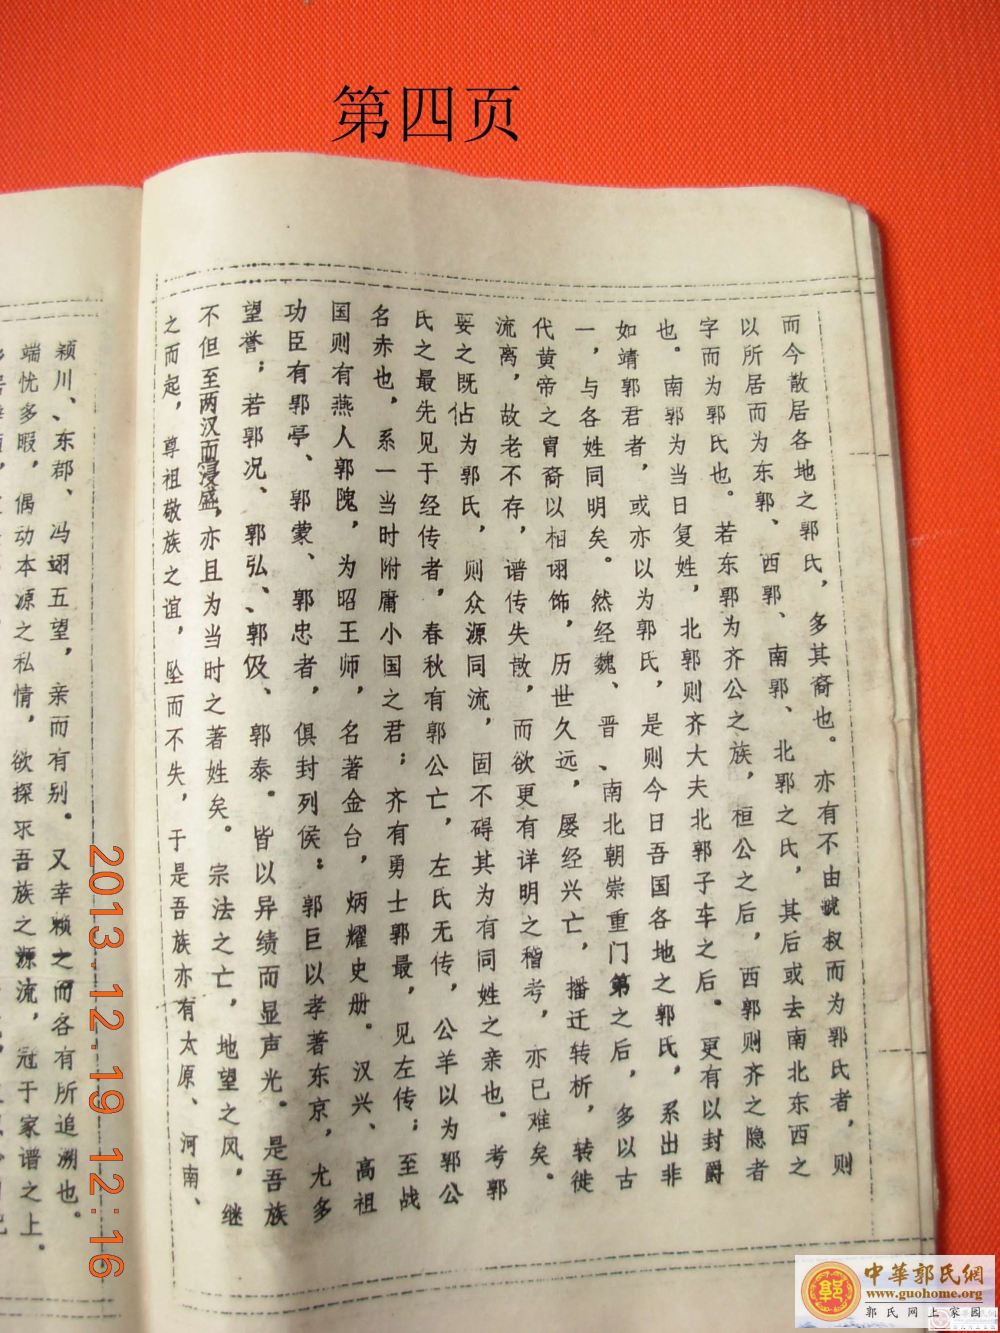 第四页
而今散居各地之郭氏，多其裔也。亦有不由虢叔而为郭氏者，则
以所居而为东郭、西郭、南郭、北郭之氏，其后或去南北东西之
字而为郭氏也。若东郭为齐公之族，桓公之后，西郭则齐之隐者
也。南郭为当日复姓，北郭则齐大夫北郭子车之后。更有以封爵
如靖郭君者，或亦以为郭氏，是则今日吾国各地之郭氏，系出非
一，与各姓同明矣。然经魏、晋、南北朝崇重门第之后，多以古
代黄帝之胄裔以相诩饰，历世久远，屡经兴亡，播迁转析，转徙
流离，故老不存，谱传失散，而欲更有详明之稽考，亦已难矣。
要之既佔为郭氏，则众源同流，固不碍其为有同姓之亲也。考郭
氏之最先见于经传者，春秋有郭公亡，左氏无传，公羊以为郭公
名赤也，系一当时附庸小国之君；齐有勇士郭最，见左传；至战
国则有燕人郭隗，为昭王师，名著金台，炳耀史册。汉兴、高祖
功臣有郭亭、郭蒙、郭忠者，俱封列侯：郭巨以孝著东京，尤多
望誉；若郭况、郭弘、郭伋、郭泰。皆以异绩而显声光。是吾族
不但至两汉而浸盛，亦且为当时之著姓矣。宗法之亡，地望之风，继
之而起，尊祖敬族之谊，坠而不失，于是吾族亦有太原、河南、
颍川、东郡、冯翊五望，亲而有别。又幸赖之而各有所追溯也。
端忧多暇，偶动本源之私情，欲探求吾族之源流，冠于家谱之上。
2013.12.19 12:16
中華郭氏網
www.guohome.org
郭氏网上家园